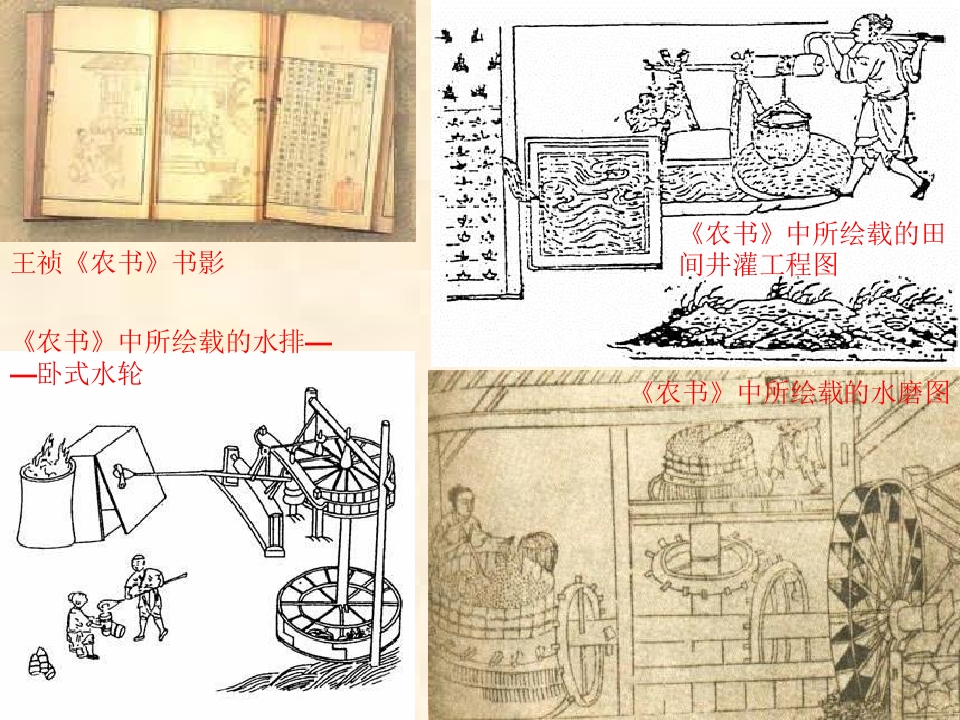 王祯《农书》书影
《农书》中所绘载的田
间井灌工程图
《农书》中所绘载的水排—
—卧式水轮
《农书》中所绘载的水磨图